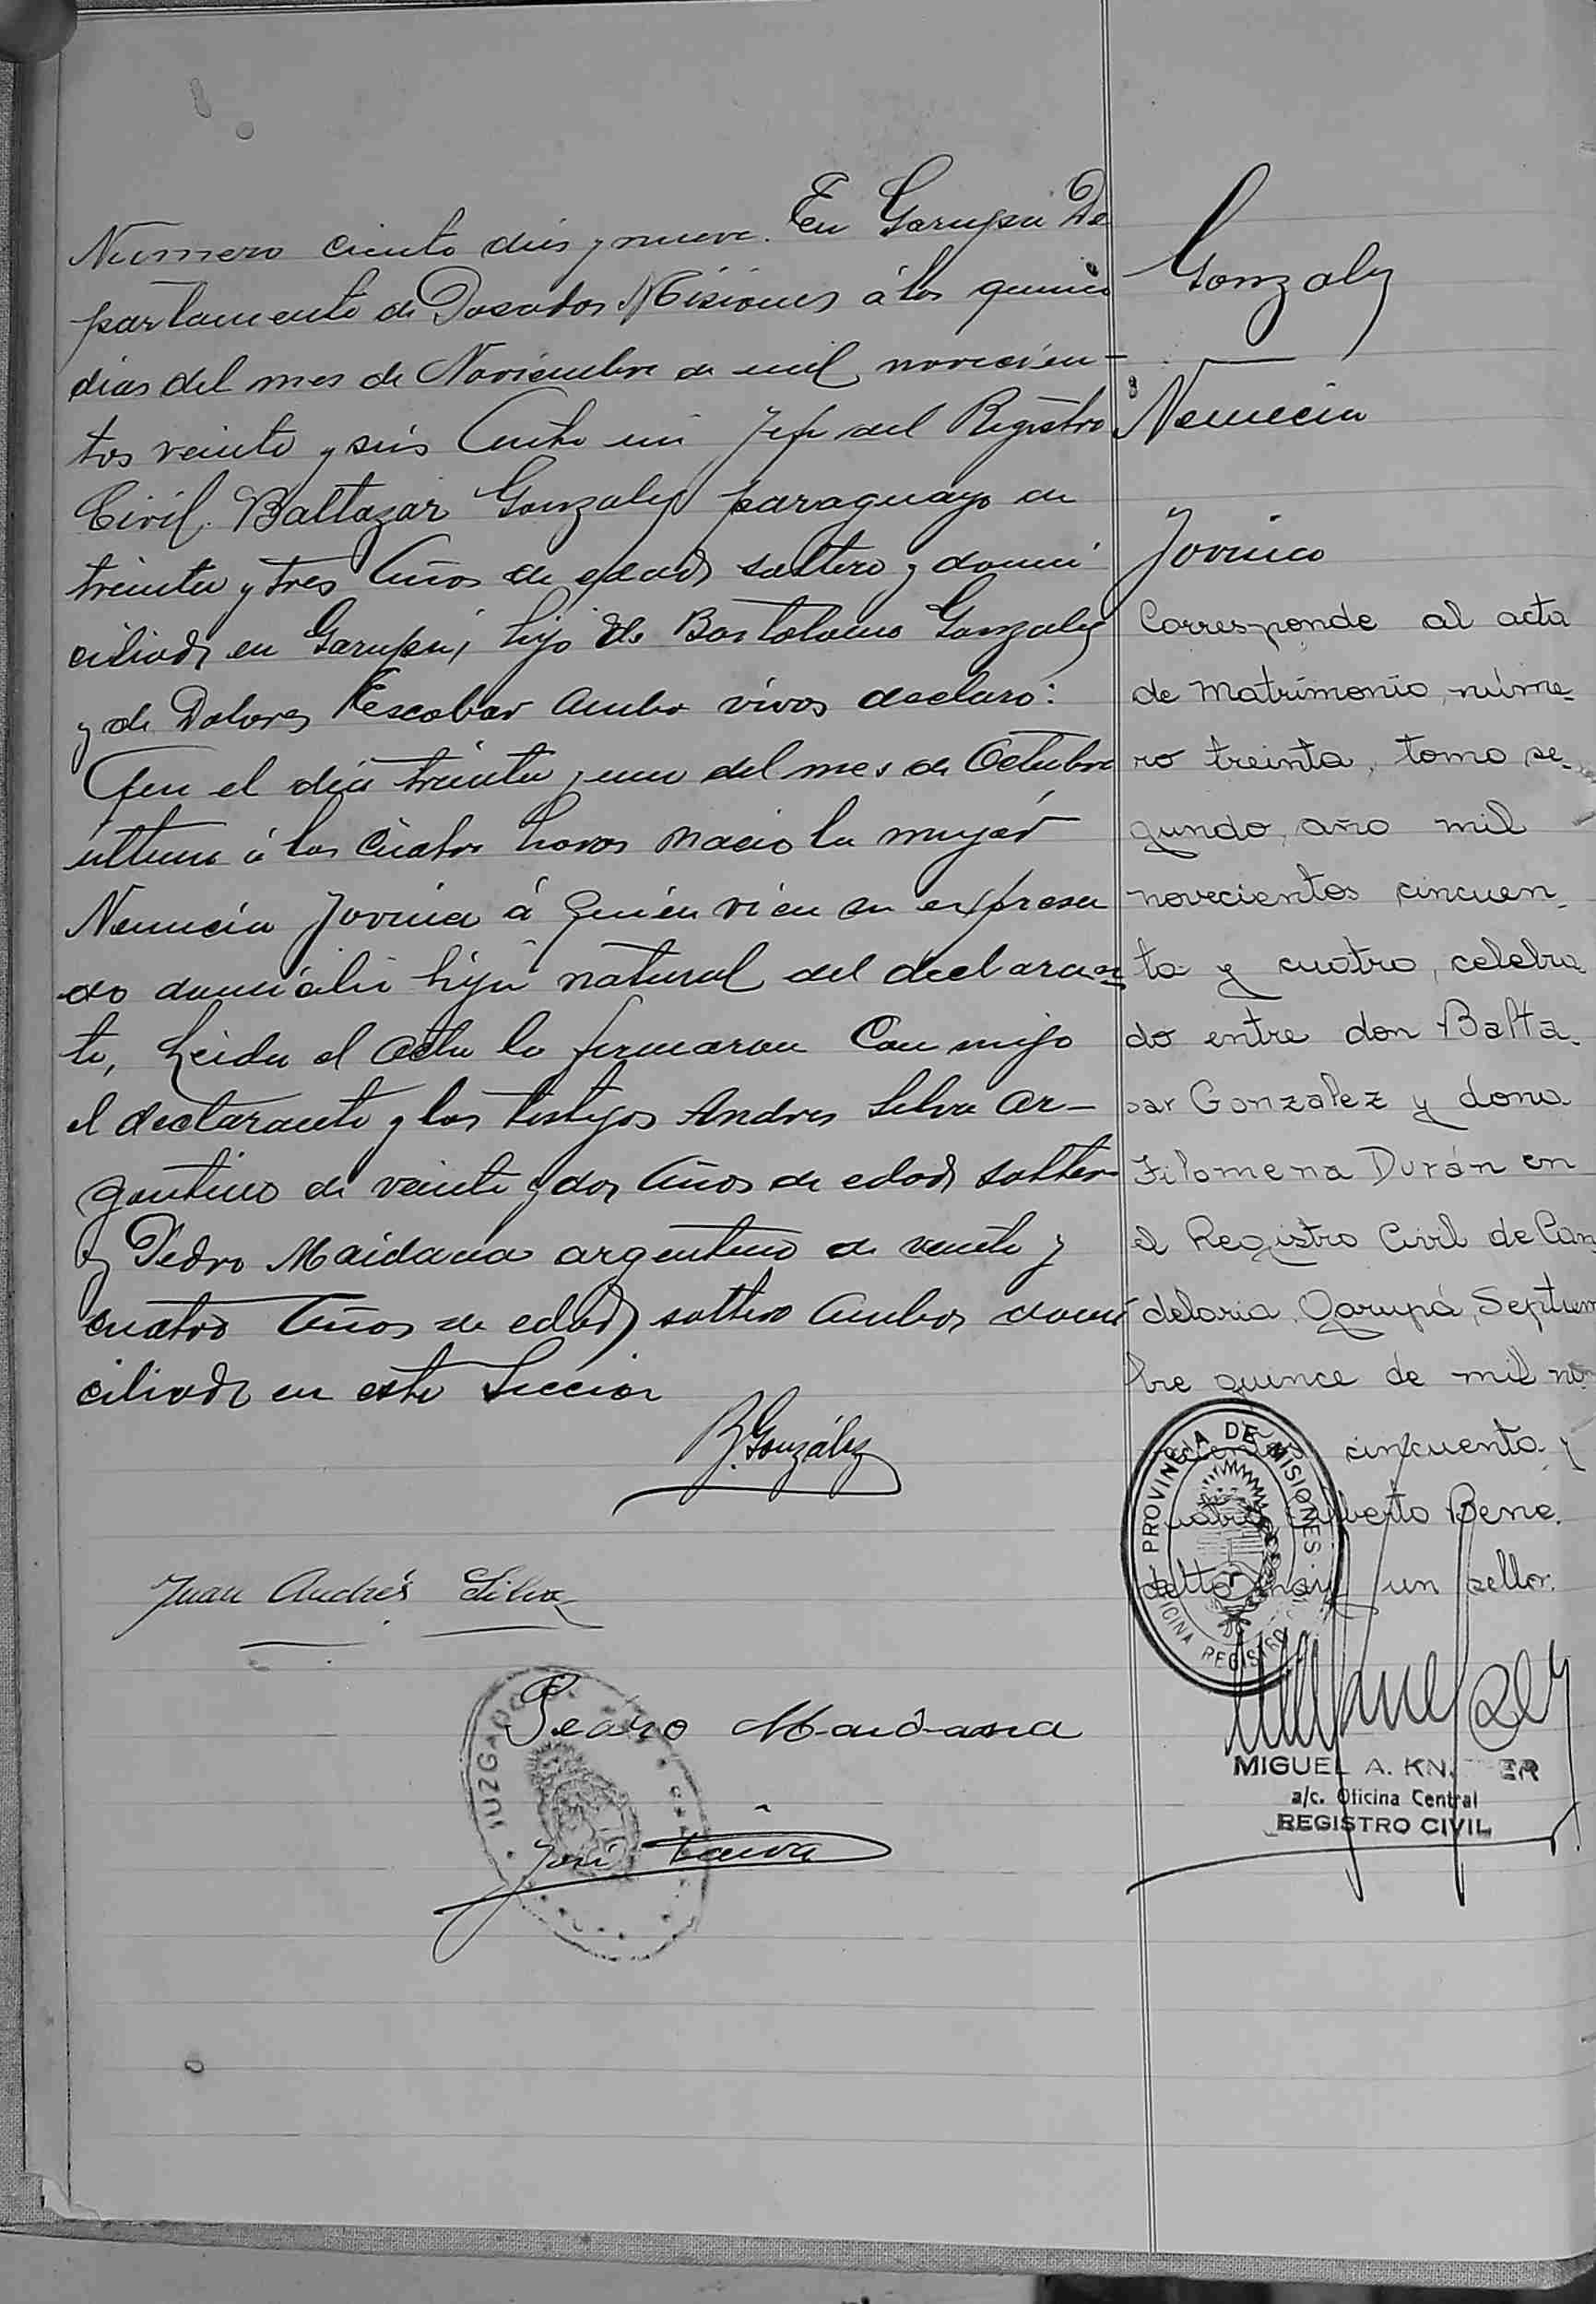 Numero ciento dies y nueve. En Garupa De
partamento de Posadas Misiones á los quince
dias del mes de Noviembre de mil novecien-
tos veinte y seis Ante mi Jefe del Registro
Civil. Baltazar Gonzalez paraguayo de
treinta y tres años de edad soltero y domi
ciliado en Garupa, hijo de Bartolome Gonzalez
y de Dolores Escobar ambos vivos declaro:
Que el dia treinta y uno del mes de Octubre
ultimo á las cuatro horas nacio la mujer
Nemecia Jovina á quien vi en su expresa
do domicilio hija natural del declaran
te, Leida el acta la firmaron Con migo
el declarante y los testigos Andres Silva Ar-
gentino de veinte y dos años de edad soltero
y Pedro Maidana argentino de veinte y
cuatro años de edad soltero ambos domi
ciliado en esta Seccion
B. González
Juan Andrés Silva
Pedro Maidana
José
JUZGADO
Gonzalez
Nemecia
Jovina
Corresponde al acta
de Matrimonio, núme-
ro treinta, tomo se-
gundo, año mil
novecientos cincuen-
ta y cuatro, celebra
do entre don Balta-
sar Gonzalez y dona
Filomena Durán en
el Registro Civil de Can
delaria. Garupá, Septiem
bre quince de mil no
vecientos cincuenta y
cuatro Alberto Bene-
detto hay un sello.
PROVINCIA DE MISIONES
OFICINA REGISTRO
MIGUEL A.
a/c. Oficina Central
REGISTRO CIVIL